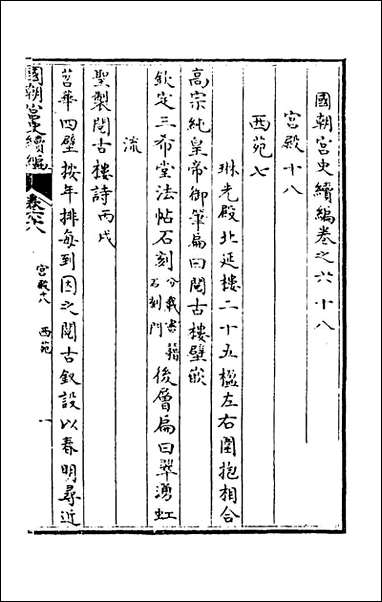 國朝宮史續編卷之六十八
宮殿十八
西苑七
琳光殿北延樓二十五楹左右圍抱相合
高宗純皇帝御筆扁曰閱古樓壁嵌
欽定三希堂法帖石刻分載書籍石刻門後層扁曰翠湧虹
流
聖製閱古樓詩丙戌
苕華四壁按年排每到因之閱古釵設以春明尋近
國朝宮史續編
卷六八
宮殿十八 西苑
一